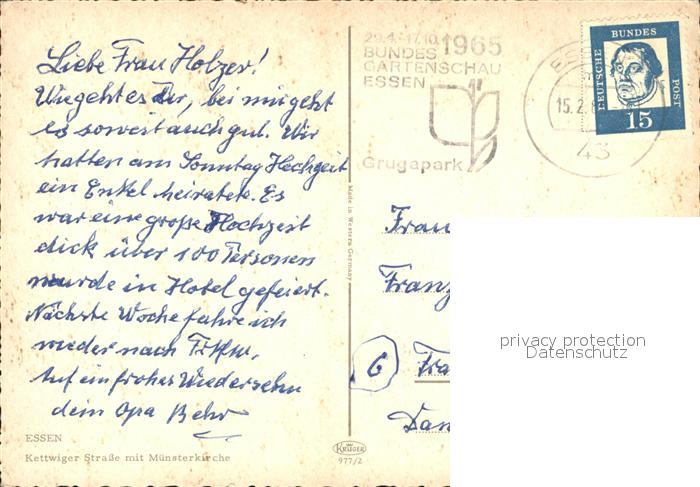 Liebe Frau Holzer!
Wie geht es Dir, bei mir geht
es soweit auch gut. Wir
hatten am Sonntag Hochzeit
ein Enkel heiratete. Es
war eine große Hochzeit
dick über 100 Personen
wurde in Hotel gefeiert.
Nächste Woche fahre ich
wieder nach
Auf ein frohes Wiedersehn
dein Opa Behr
ESSEN
Kettwiger Straße mit Münsterkirche
Made in Western Germany
KRÜGER
977/2
29.4.-17.10. 1965
BUNDES
GARTENSCHAU
ESSEN
Grugapark
15.2.
43
DEUTSCHE BUNDES POST
15
Frau
Franz
6
Fra
Dan
privacy protection
Datenschutz